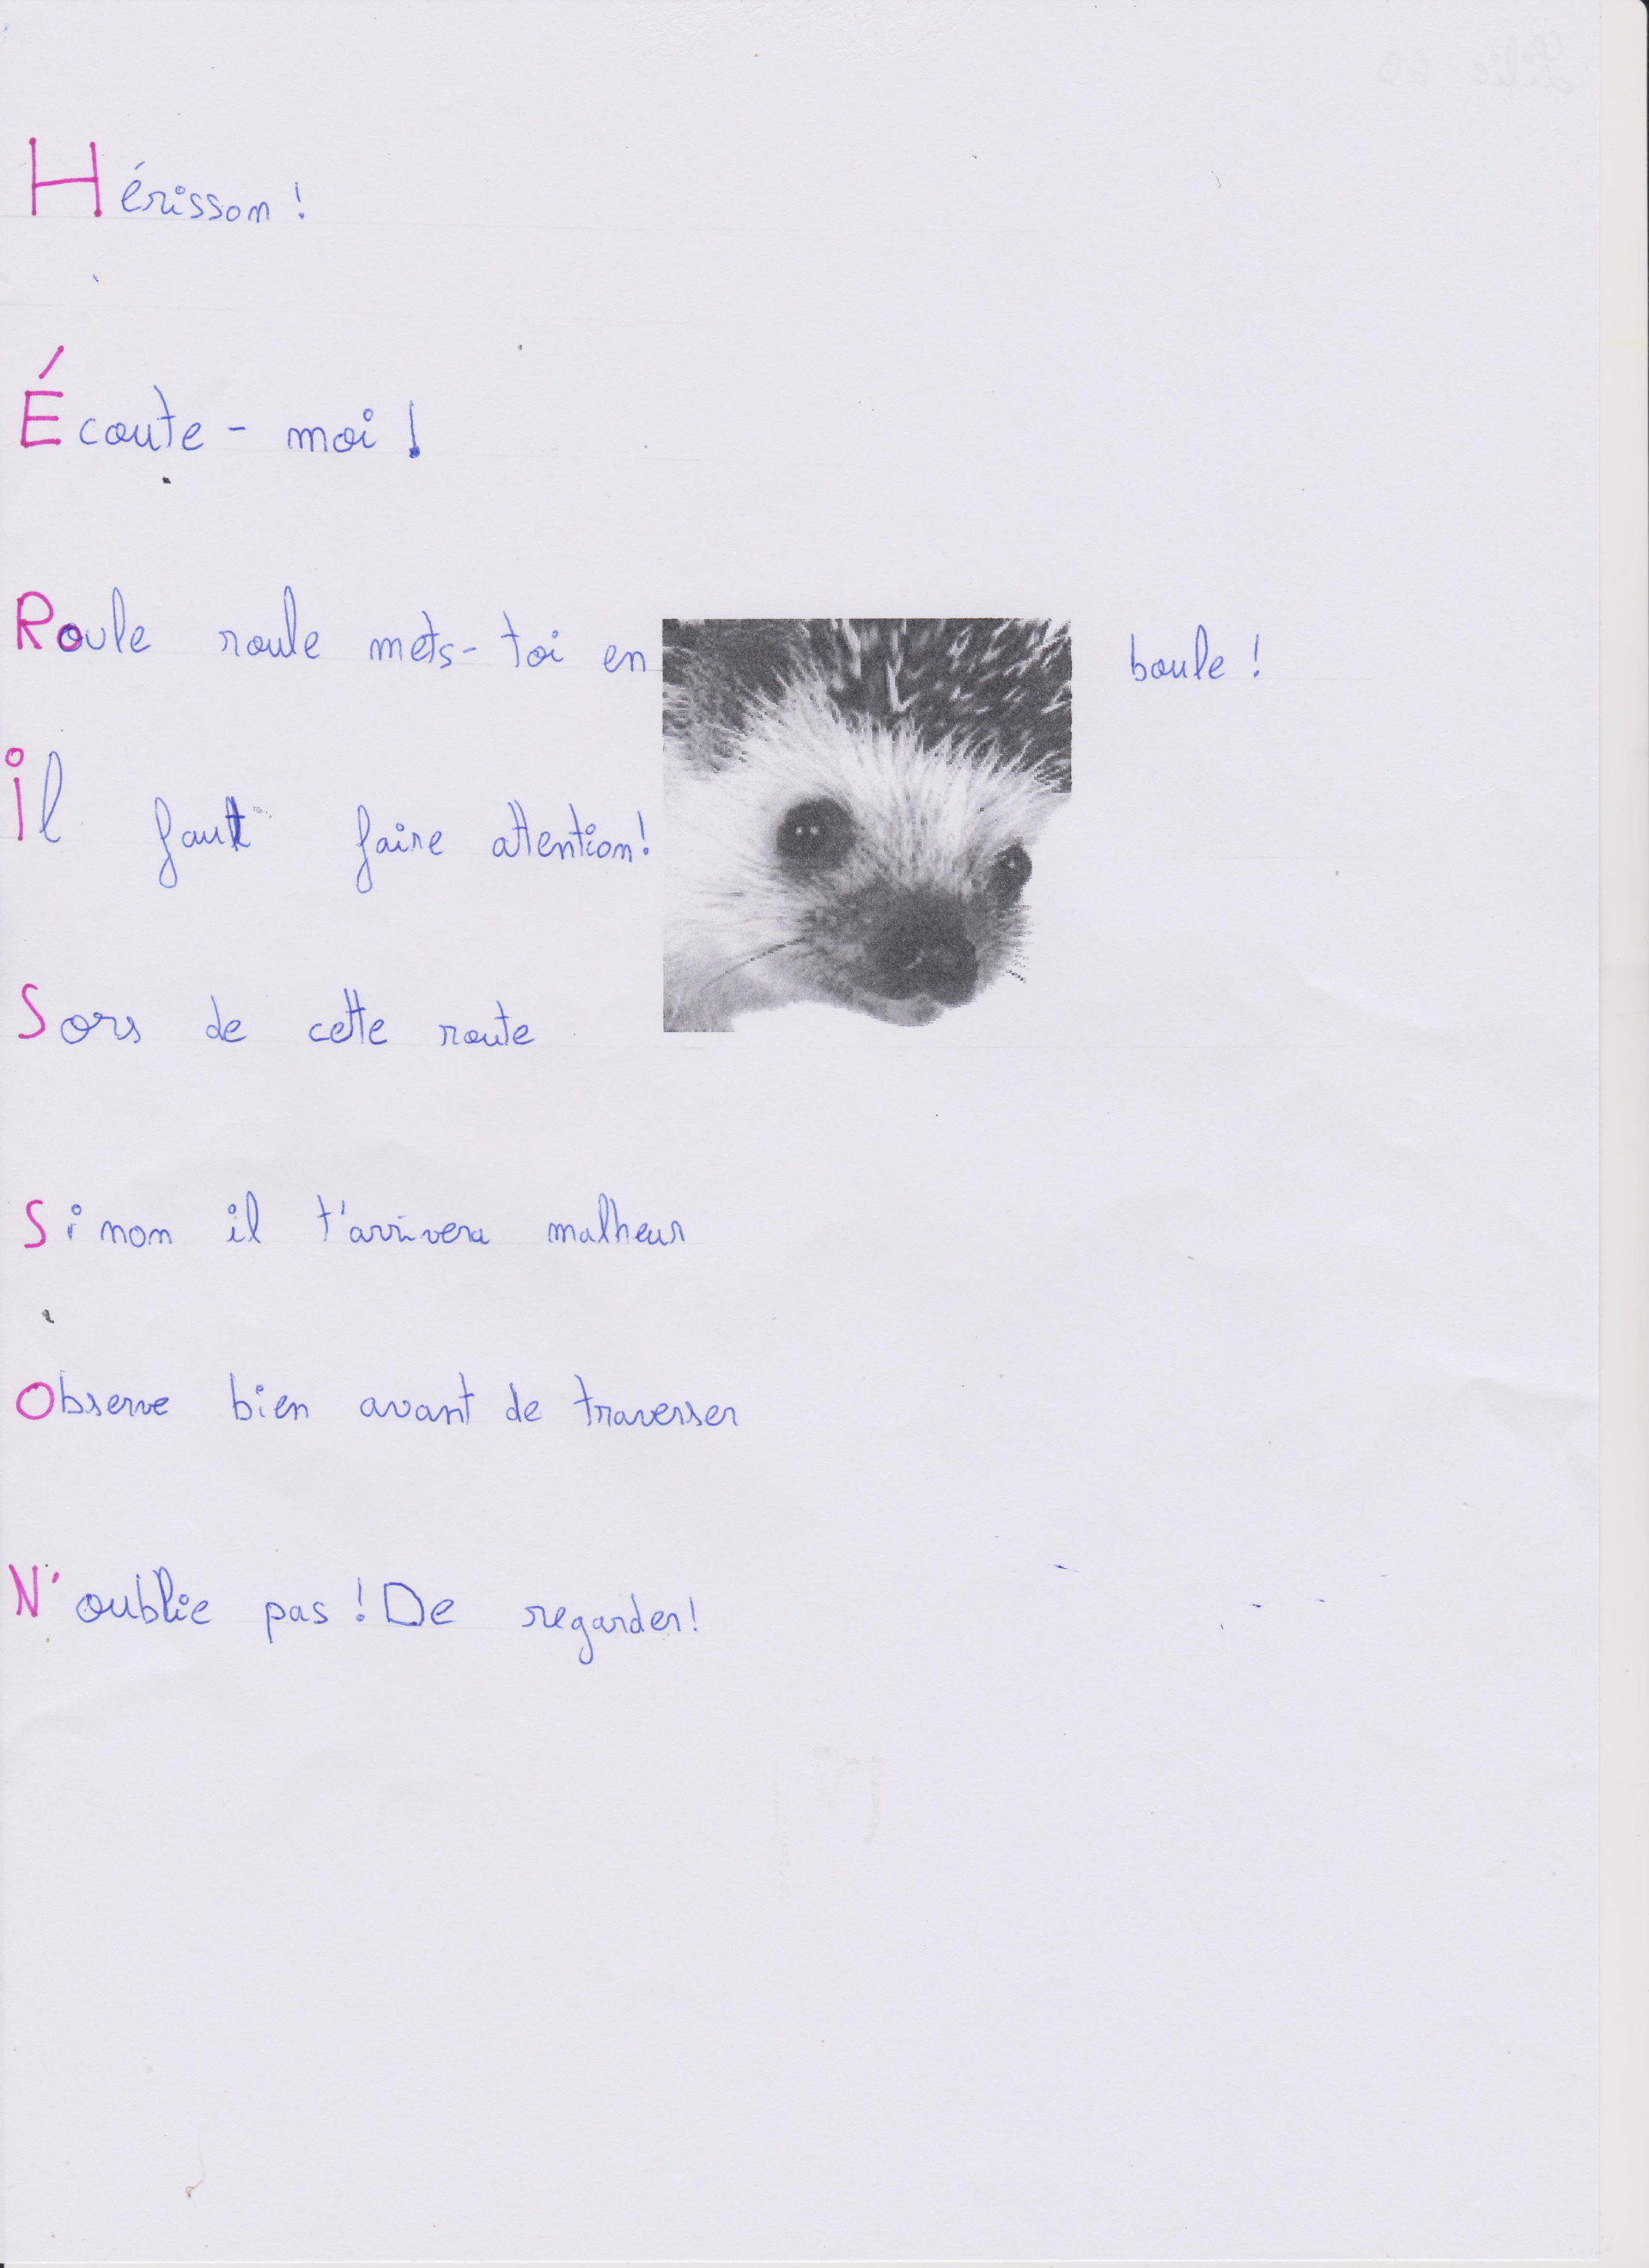 Hérisson !
Écoute-moi !
Roule roule mets-toi en boule !
Il faut faire attention !
Sors de cette route
Si non il t'arrivera malheur
Observe bien avant de traverser
N'oublie pas ! De regarder !